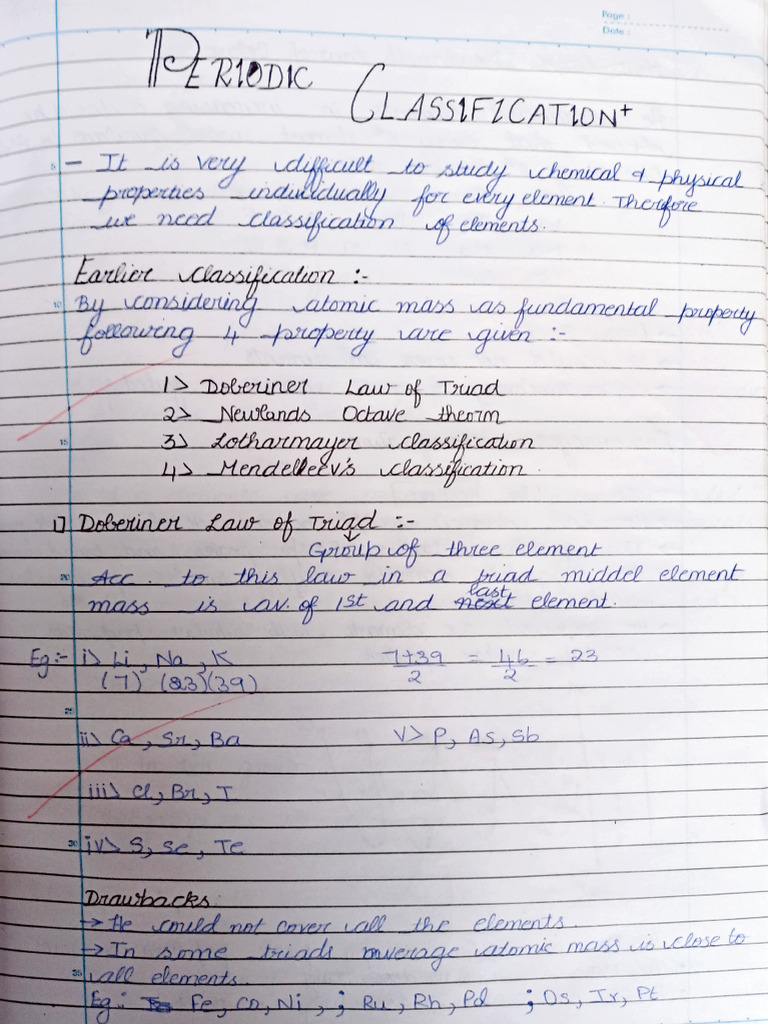 Page :
Date :
PERIODIC
CLASSIFICATION
- It is very difficult to study chemical & physical
properties individually for every element. Therefore
we need classification of elements.
Earlier classification :-
By considering atomic mass as fundamental property
following 4 property are given :-
1> Doberiner Law of Triad
2> Newlands Octave theorm
3> Lotharmayer classification
4> Mendelleev's classification.
1) Doberiner Law of Triad :-
Group of three element
Acc. to this law in a triad middel element
mass is av. of 1st and last element.
Eg:- i> Li, Na, K 7+39/2 = 46/2 = 23
(7) (23)(39)
ii> Ca, Sr, Ba V> P, As, Sb
iii> Cl, Br, I
iv> S, Se, Te
Drawbacks:
→ He could not cover all the elements.
→ In some triads average atomic mass is close to
all elements.
Eg:- Fe, Co, Ni, ; Ru, Rh, Pd ; Os, Ir, Pt
5
10
15
20
25
30
35